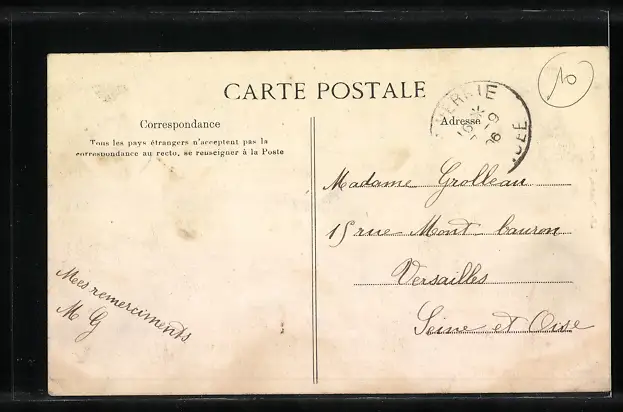 CARTE POSTALE
Correspondance
Tous les pays étrangers n'acceptent pas la
correspondance au recto, se renseigner à la Poste
Adresse
Madame Grolleau
15 rue Mont-bauron
Versailles
Seine et Oise
Mes remerciments
M G
10